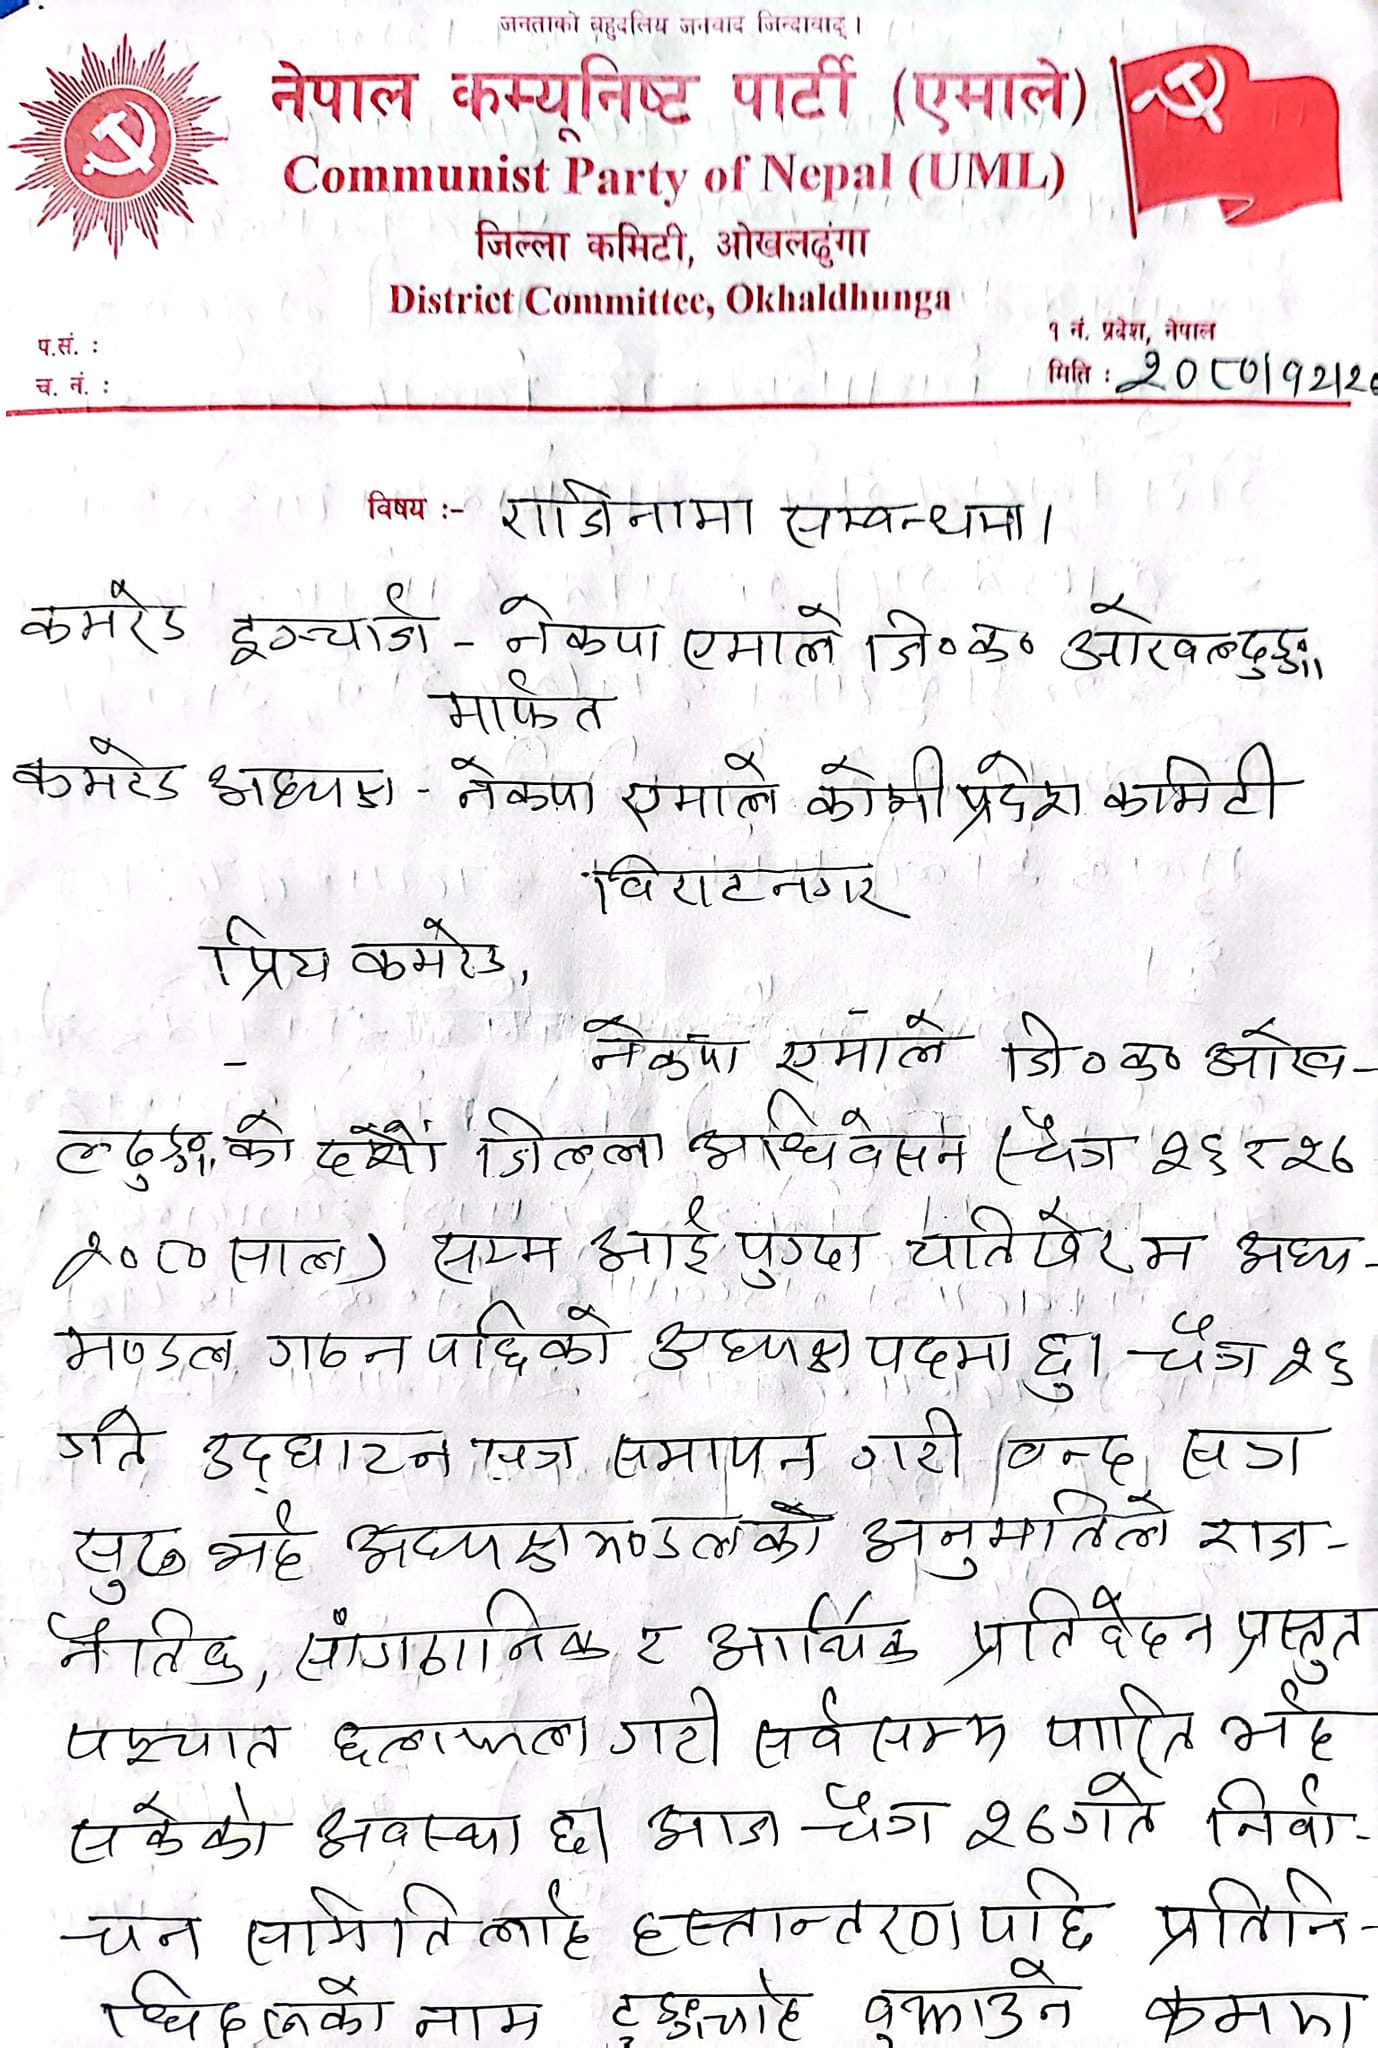 जनताको बहुदलिय जनवाद जिन्दावाद् ।
नेपाल कम्यूनिष्ट पार्टी (एमाले)
Communist Party of Nepal (UML)
जिल्ला कमिटी, ओखलढुंगा
District Committee, Okhaldhunga
१ नं. प्रदेश, नेपाल
प.सं. :
मिति : २०८०।१२।२७
च. नं. :
विषय :- राजिनामा सम्वन्धमा।
कमरेड इन्चार्ज - नेकपा एमाले जि०क० ओखलढुङ्गा
मार्फत
कमरेड अध्यक्ष - नेकपा एमाले कोशी प्रदेश कमिटी
विराटनगर
प्रिय कमरेड,
- नेकपा एमाले जि०क० ओख-
लढुङ्गाको दशौं जिल्ला अधिवेसन (चैत्र २६ र २७
२०८० साल) सम्म आई पुग्दा म अध्य-
मण्डल गठन पछिको अध्यक्ष पदमा छु। चैत्र २६
गते उद्घाटन सत्र समापन गरी वन्द सत्र
सुरु भई अध्यक्षमण्डलको अनुमतिले राज-
नैतिक, सांगठानिक र आर्थिक प्रतिवेदन प्रस्तुत
पश्चात छलफल गरी सर्वसम्म पारित भई
सकेको अवस्था छ। आज चैत्र २७गते निर्वा-
चन समितिलाई हस्तान्तरण पछि प्रतिनि-
धिहरुको नाम टुङ्ग्याई वुझाउने क्रममा